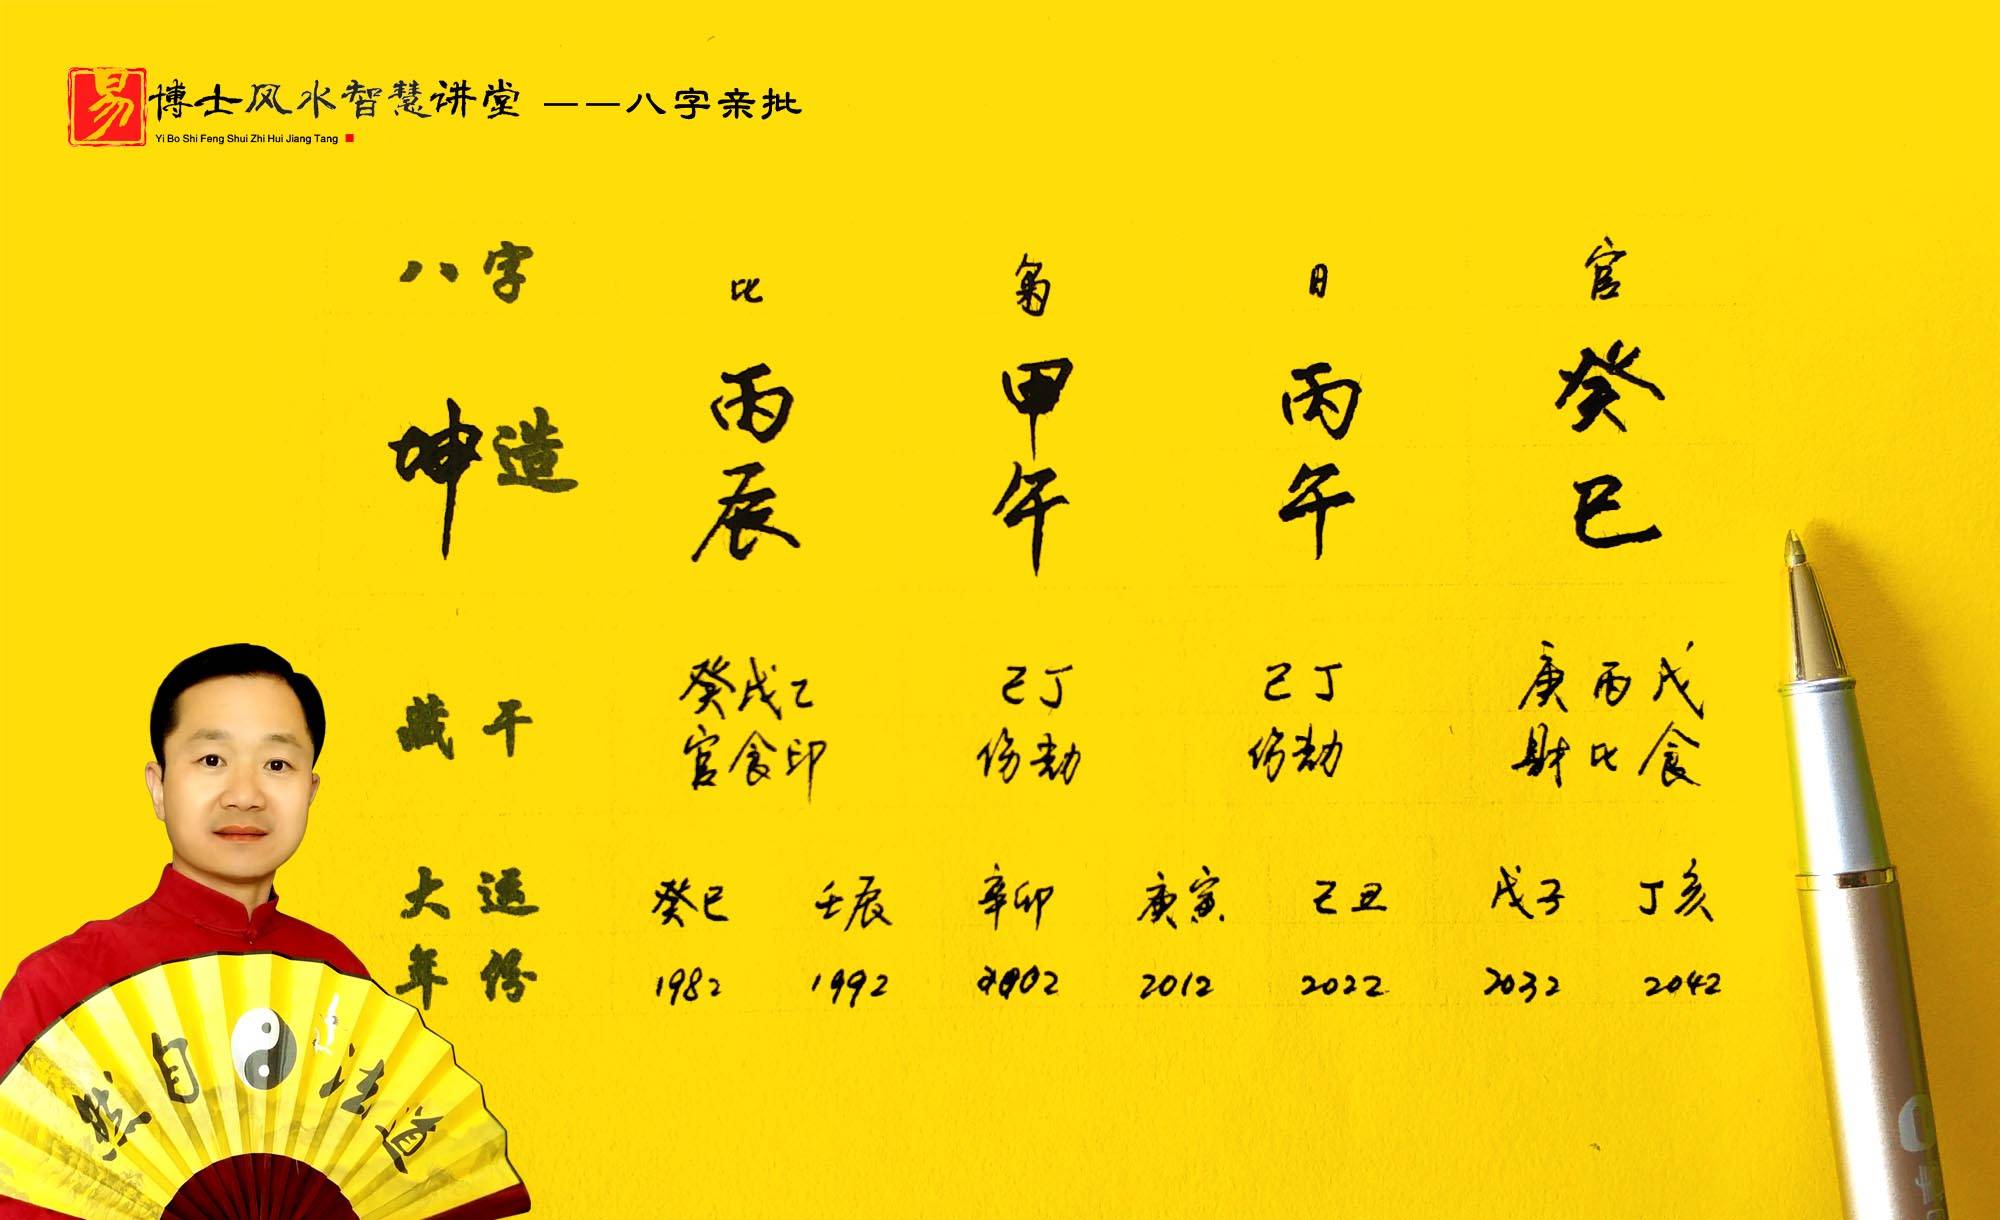 易博士风水智慧讲堂 ——八字亲批
Yi Bo Shi Feng Shui Zhi Hui Jiang Tang
八字 比 枭 日 官
坤造 丙辰 甲午 丙午 癸巳
藏干 癸戊乙 己丁 己丁 庚丙戊
官食印 伤劫 伤劫 财比食
大运 癸巳 壬辰 辛卯 庚寅 己丑 戊子 丁亥
年份 1982 1992 2002 2012 2022 2032 2042
道法自然